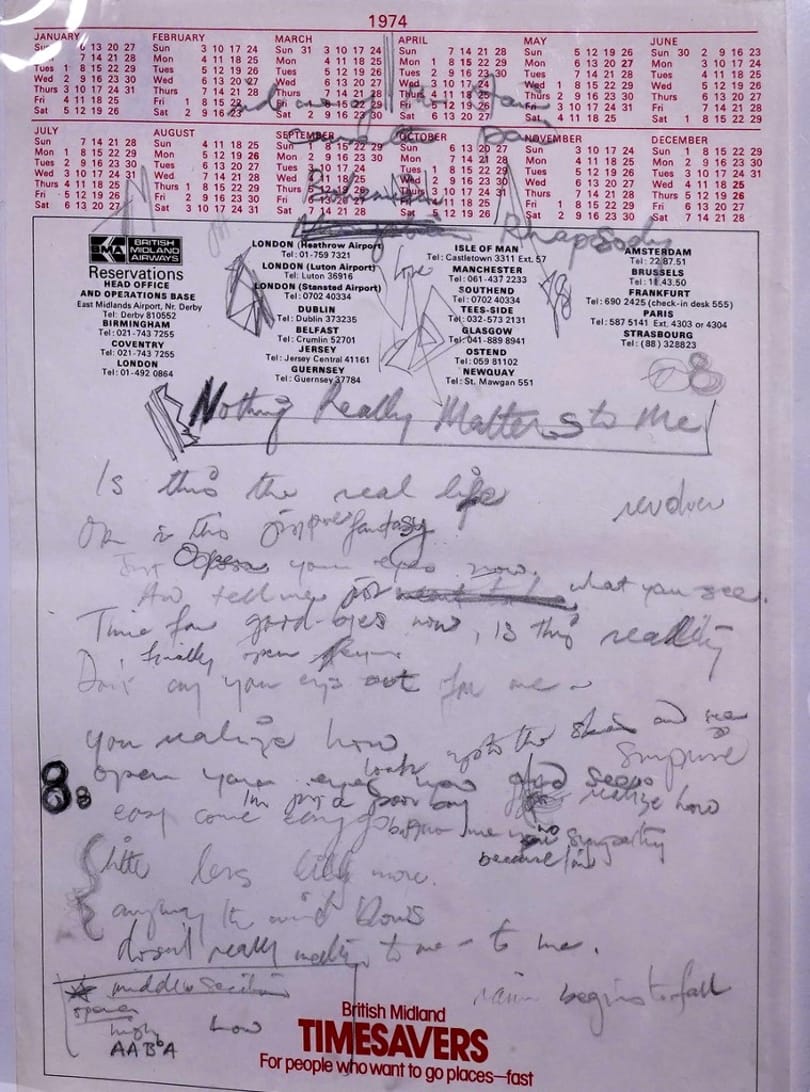 1974
JANUARY FEBRUARY MARCH APRIL MAY JUNE
Sun 6 13 20 27 Sun 3 10 17 24 Sun 31 3 10 17 24 Sun 7 14 21 28 Sun 5 12 19 26 Sun 30 2 9 16 23
7 14 21 28 Mon 4 11 18 25 Mon 4 11 18 25 Mon 1 8 15 22 29 Mon 6 13 20 27 Mon 3 10 17 24
Tues 1 8 15 22 29 Tues 5 12 19 26 Tues 5 12 19 26 Tues 2 9 16 23 30 Tues 7 14 21 28 Tues 4 11 18 25
Wed 2 9 16 23 30 Wed 6 13 20 27 Wed 6 13 20 27 Wed 3 10 17 24 Wed 1 8 15 22 29 Wed 5 12 19 26
Thurs 3 10 17 24 31 Thurs 7 14 21 28 Thurs 7 14 21 28 Thurs 4 11 18 25 Thurs 2 9 16 23 30 Thurs 6 13 20 27
Fri 4 11 18 25 Fri 1 8 15 22 Fri 1 8 15 22 Fri 5 12 19 26 Fri 3 10 17 24 31 Fri 7 14 21 28
Sat 5 12 19 26 Sat 2 9 16 23 Sat 2 9 16 23 Sat 6 13 20 27 Sat 4 11 18 25 Sat 1 8 15 22 29
JULY AUGUST SEPTEMBER OCTOBER NOVEMBER DECEMBER
Sun 7 14 21 28 Sun 4 11 18 25 Sun 1 8 15 22 29 Sun 6 13 20 27 Sun 3 10 17 24 Sun 1 8 15 22 29
Mon 1 8 15 22 29 Mon 5 12 19 26 Mon 2 9 16 23 30 Mon 7 14 21 28 Mon 4 11 18 25 Mon 2 9 16 23 30
Tues 2 9 16 23 30 Tues 6 13 20 27 Tues 3 10 17 24 Tues 1 8 15 22 29 Tues 5 12 19 26 Tues 3 10 17 24 31
Wed 3 10 17 24 31 Wed 7 14 21 28 Wed 4 11 18 25 Wed 2 9 16 23 30 Wed 6 13 20 27 Wed 4 11 18 25
Thurs 4 11 18 25 Thurs 1 8 15 22 29 Thurs 5 12 19 26 Thurs 3 10 17 24 31 Thurs 7 14 21 28 Thurs 5 12 19 26
Fri 5 12 19 26 Fri 2 9 16 23 30 Fri 6 13 20 27 Fri 4 11 18 25 Fri 1 8 15 22 29 Fri 6 13 20 27
Sat 6 13 20 27 Sat 3 10 17 24 31 Sat 7 14 21 28 Sat 5 12 19 26 Sat 2 9 16 23 30 Sat 7 14 21 28
Rhapsody
BMA BRITISH MIDLAND AIRWAYS
Reservations
HEAD OFFICE
AND OPERATIONS BASE
East Midlands Airport, Nr. Derby
Tel: Derby 810552
BIRMINGHAM
Tel: 021-743 7255
COVENTRY
Tel: 021-743 7255
LONDON
Tel: 01-492 0864
LONDON (Heathrow Airport)
Tel: 01-759 7321
LONDON (Luton Airport)
Tel: Luton 36916
LONDON (Stansted Airport)
Tel: 0702 40334
DUBLIN
Tel: Dublin 373235
BELFAST
Tel: Crumlin 52701
JERSEY
Tel: Jersey Central 41161
GUERNSEY
Tel: Guernsey 37784
Love
ISLE OF MAN
Tel: Castletown 3311 Ext. 57
MANCHESTER
Tel: 061-437 2233
SOUTHEND
Tel: 0702 40334
TEES-SIDE
Tel: 032-573 2131
GLASGOW
Tel: 041-889 8941
OSTEND
Tel: 059 81102
NEWQUAY
Tel: St. Mawgan 551
AMSTERDAM
Tel: 22.87.51
BRUSSELS
Tel: 11.43.50
FRANKFURT
Tel: 690 2425 (check-in desk 555)
PARIS
Tel: 587 5141 Ext. 4303 or 4304
STRASBOURG
Tel: (88) 328823
8
Nothing Really Matters to Me
Is this the real life
revolver
Or is this just fantasy
Just Open your eyes now.
And tell me what you see.
Time for good-byes now, is this reality
finally open
Don't cry your eyes out for me
you realize how
look up to the skies and see
Surprise
8 8
open your eyes now and see
I'm just a poor boy realize how
easy come easy go no sympathy
because I'm
little less little more.
anyway the wind blows
doesn't really matter to me - to me.
middle section
rain begins to fall
opera
high low
AABA
British Midland
TIMESAVERS
For people who want to go places—fast